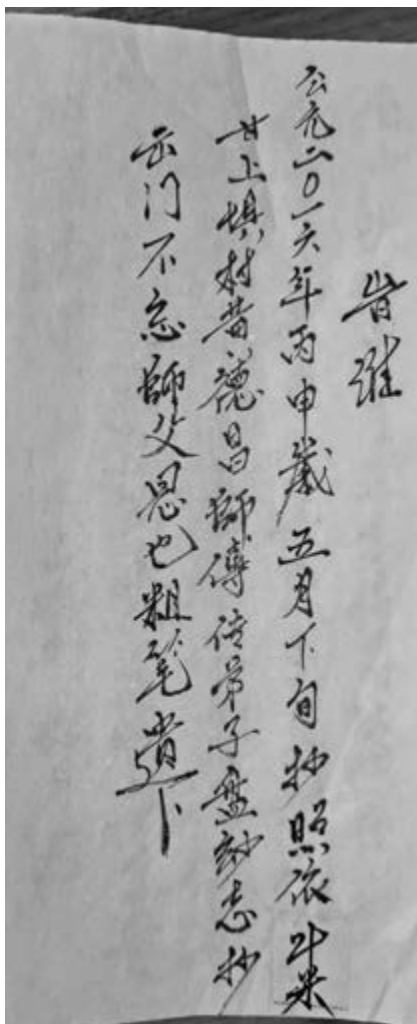 旹維
公元二0一六年丙申歲五月下旬抄照依斗米
廿上塤村黄德昌師傅传弟子盤妙志抄
云门不忘師父恩也粗笔遺下